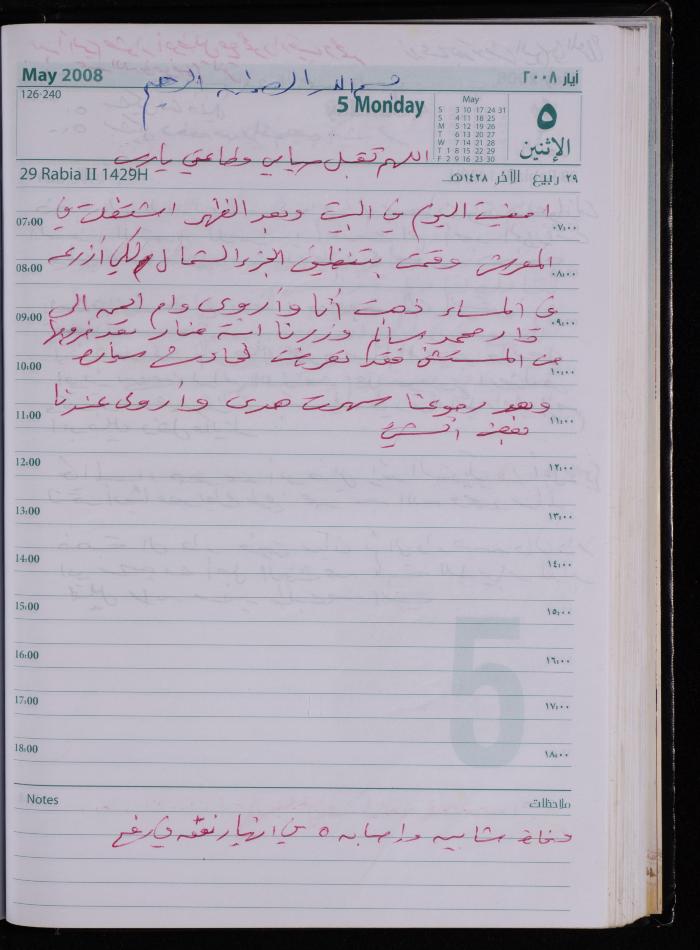 May 2008
أيار ٢٠٠٨
بسم الله الرحمن الرحيم
126-240
5 Monday
May
S 3 10 17 24 31
S 4 11 18 25
M 5 12 19 26
T 6 13 20 27
W 7 14 21 28
T 1 8 15 22 29
F 2 9 16 23 30
٥
الإثنين
اللهم تقبل صيامي وطاعتي يارب
29 Rabia II 1429H
٢٩ ربيع الآخر ١٤٢٨هـ
امضيت اليوم في البيت وبعد الظهر اشتغلت في
07:00
٠٧:٠٠
المعرش وقمت بتنظيف الجزء الشمالي لكي أزرعه
08:00
٠٨:٠٠
في المساء ذهبت أنا وأروى وام ايمن الى
09:00
٠٩:٠٠
دار محمد سالم وزرنا ابنته منار بعد خروجها
من المستشفى فقد تعرضت لحادث سيارة
10:00
١٠:٠٠
وبعد رجوعنا سهرت هدى وأروى عندنا
11:00
١١:٠٠
بعض الشيء
12:00
١٢:٠٠
13:00
١٣:٠٠
14:00
١٤:٠٠
15:00
١٥:٠٠
5
16:00
١٦:٠٠
17:00
١٧:٠٠
18:00
١٨:٠٠
Notes
ملاحظات
وفاة شابين واصابة ٥ في انهيار نفق في رفح